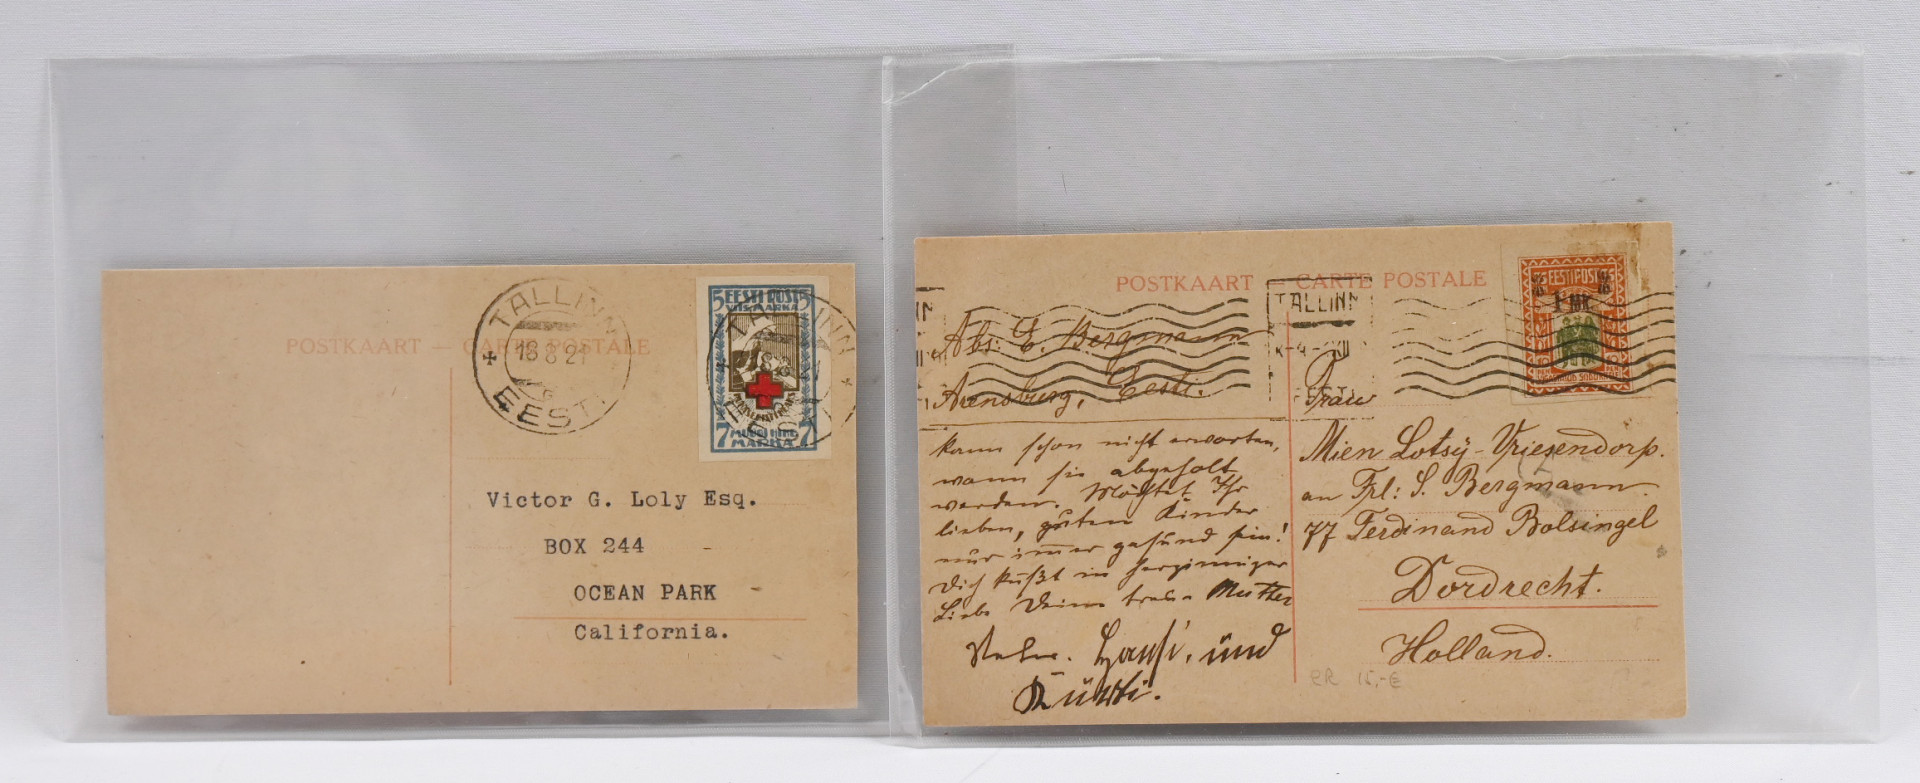 POSTKAART — CARTE POSTALE
TALLINN
18 8 21
EESTI
5 EESTI POST 5
7 MARKA 7
TALLINN
Victor G. Loly Esq.
BOX 244
OCEAN PARK
California.
POSTKAART — CARTE POSTALE
TALLINN
EESTI POST
1 MK.
Abs: E. Bergmann
Arensburg, Eesti.
kann schon nicht erwarten,
wann sie abgeholt
werden. Möchtet Ihr
lieben, guten Kinder
nur immer gesund sein!
Dich küßt in herzinniger
Liebe Deine treue Mutter
Hansi, und
Frau
Mien Lotsÿ-Vriesendorp.
an Frl: S. Bergmann.
77 Ferdinand Bolsingel
Dordrecht.
Holland.
15,-€